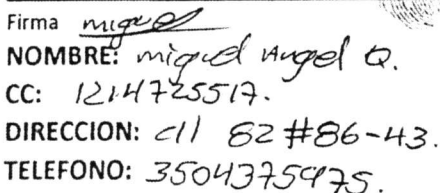 Firma miguel
NOMBRE: miguel Angel Q.
CC: 1214725517.
DIRECCION: cll 82 #86-43.
TELEFONO: 3504375975.